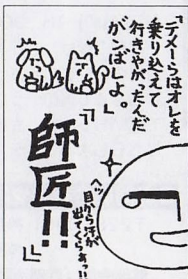 「テメーらはオレを
乗り越えて
行きやがったんだ
がンばしよ。
」
「師匠!!
」
ヘッ
目から汗が
出てくらあっ!!